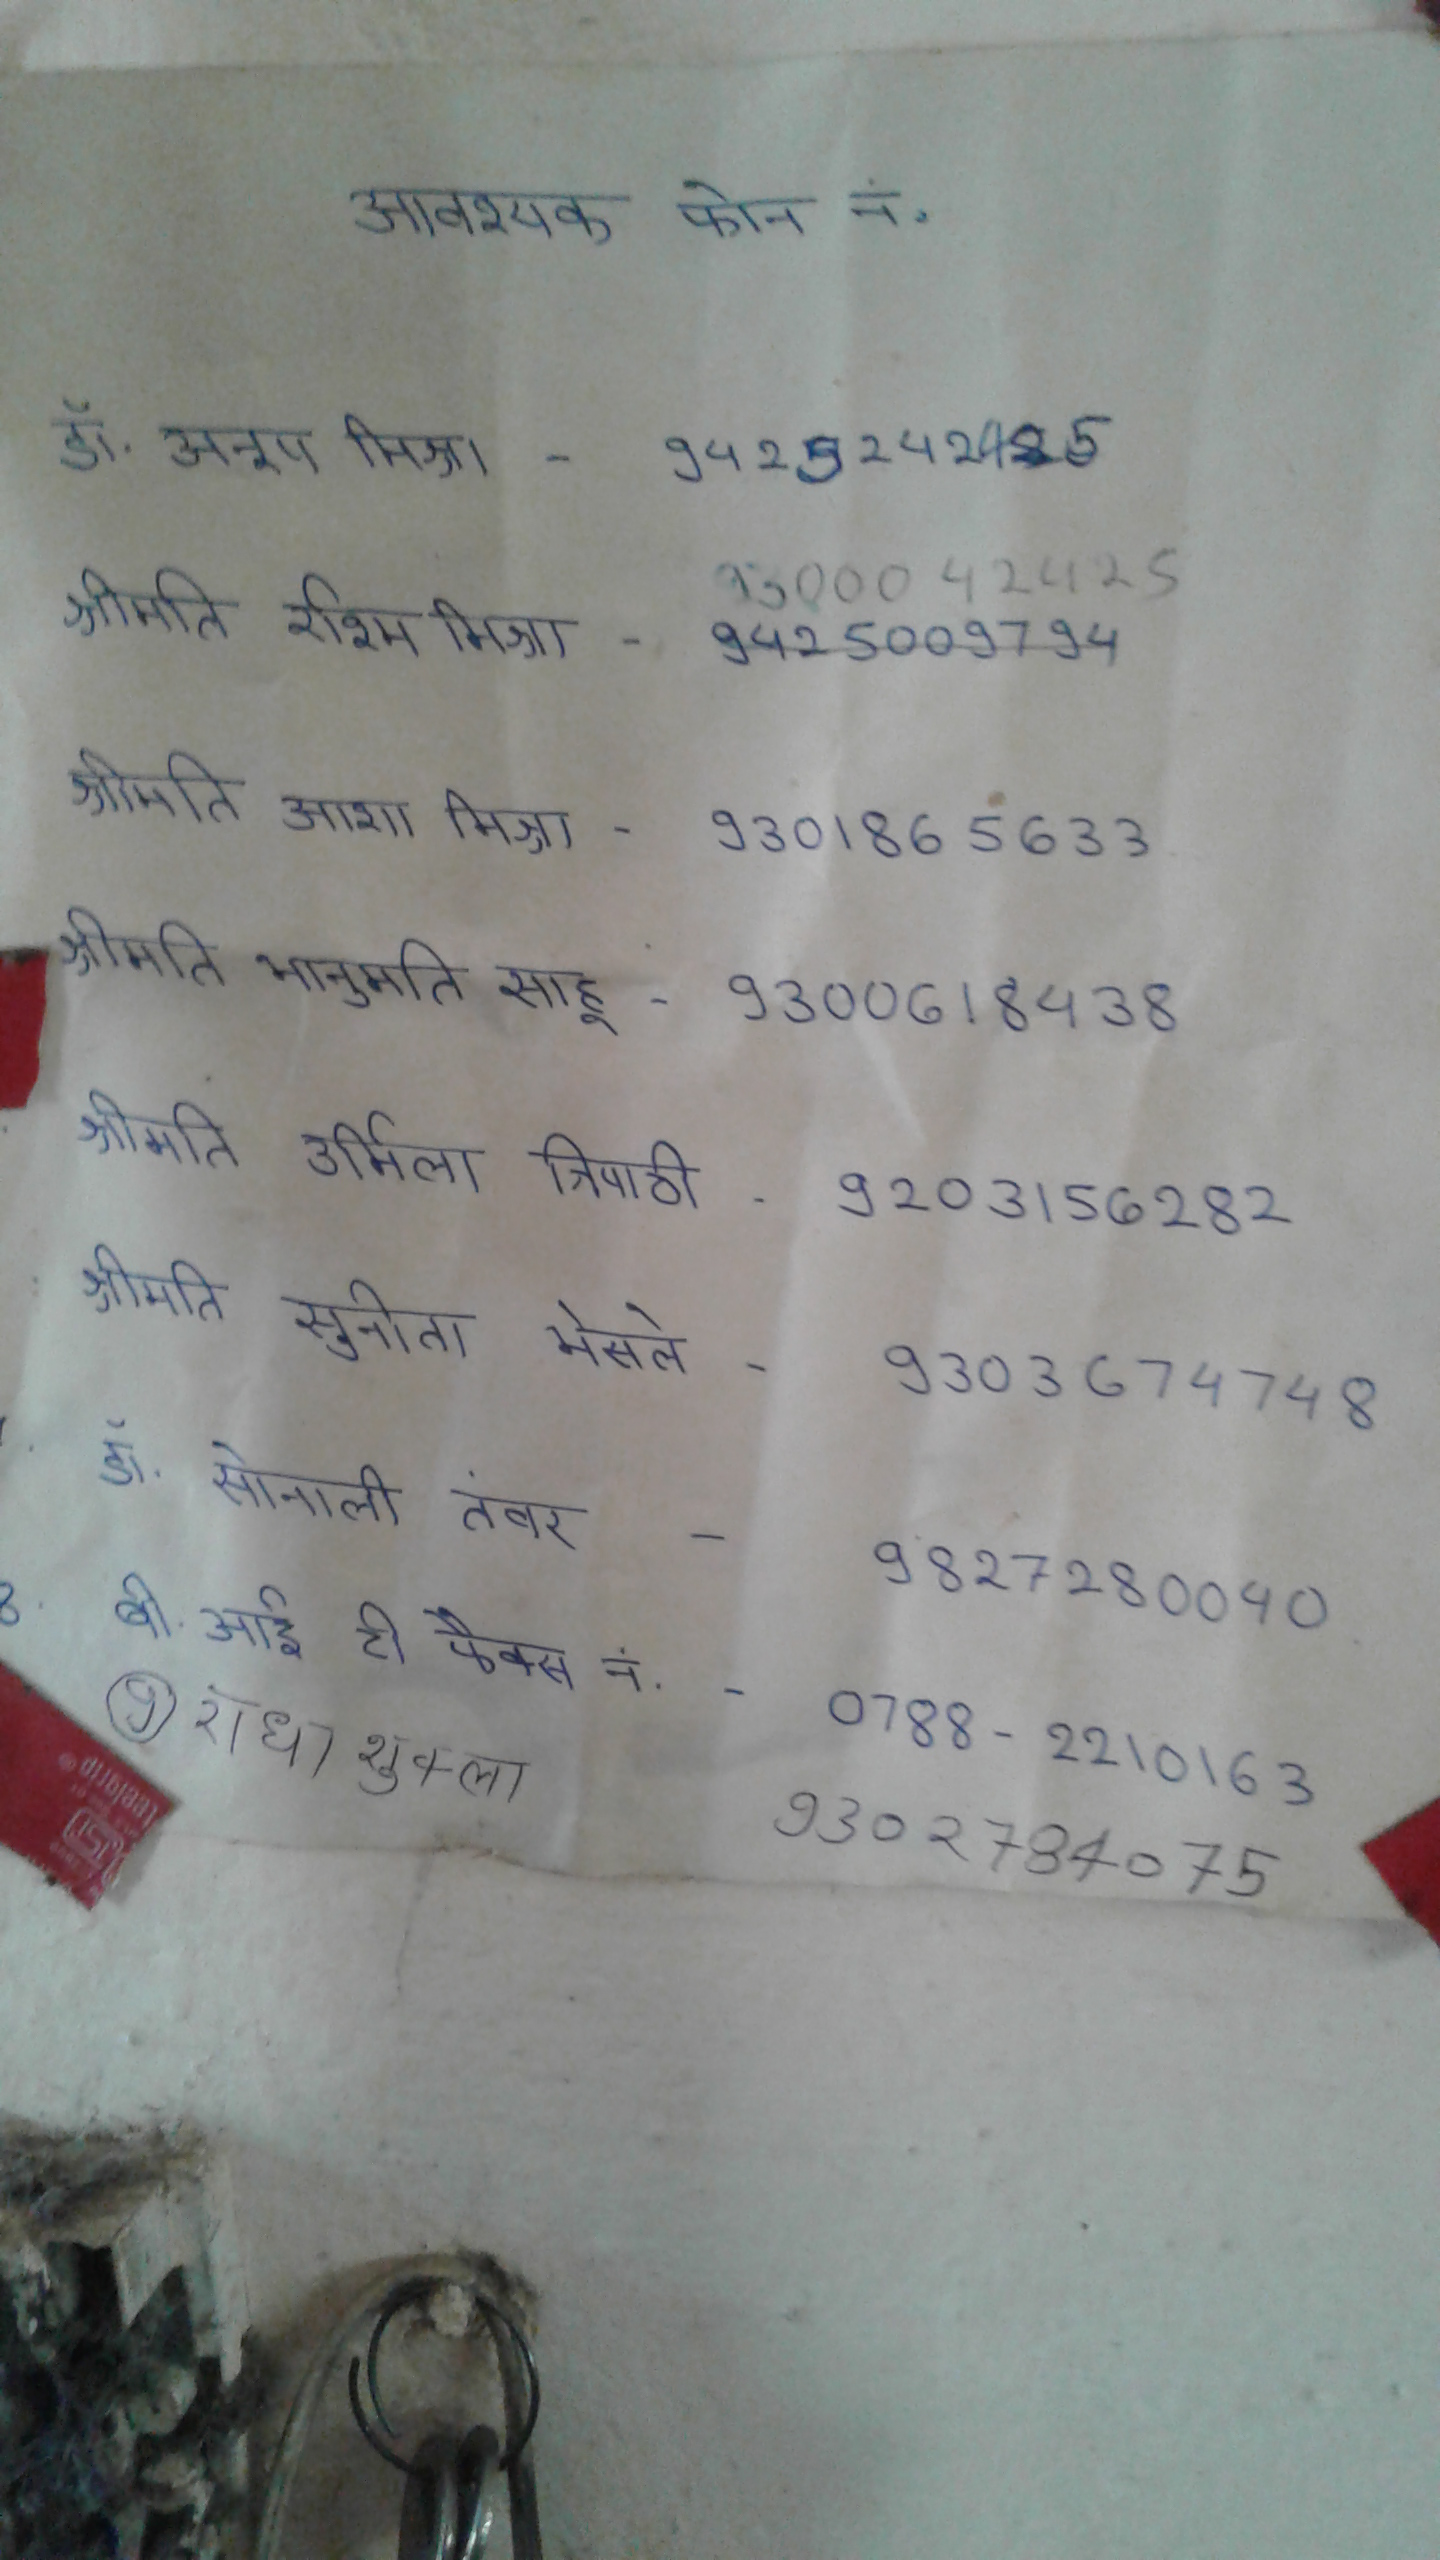 आवश्यक फोन नं.
डॉ. अनूप मिश्रा -
93000 42425
श्रीमति रश्मि मिश्रा - 9425009794
श्रीमति आशा मिश्रा - 9301865633
श्रीमति भानुमति साहू - 9300618438
श्रीमति उर्मिला त्रिपाठी - 9203156282
श्रीमति सुनीता भोसले - 9303674748
डॉ. सोनाली तंवर - 9827280040
8. बी. आई टी फैक्स नं. - 0788-2210163
9 राधा शुक्ला 9302784075
Leelagrip
ISI